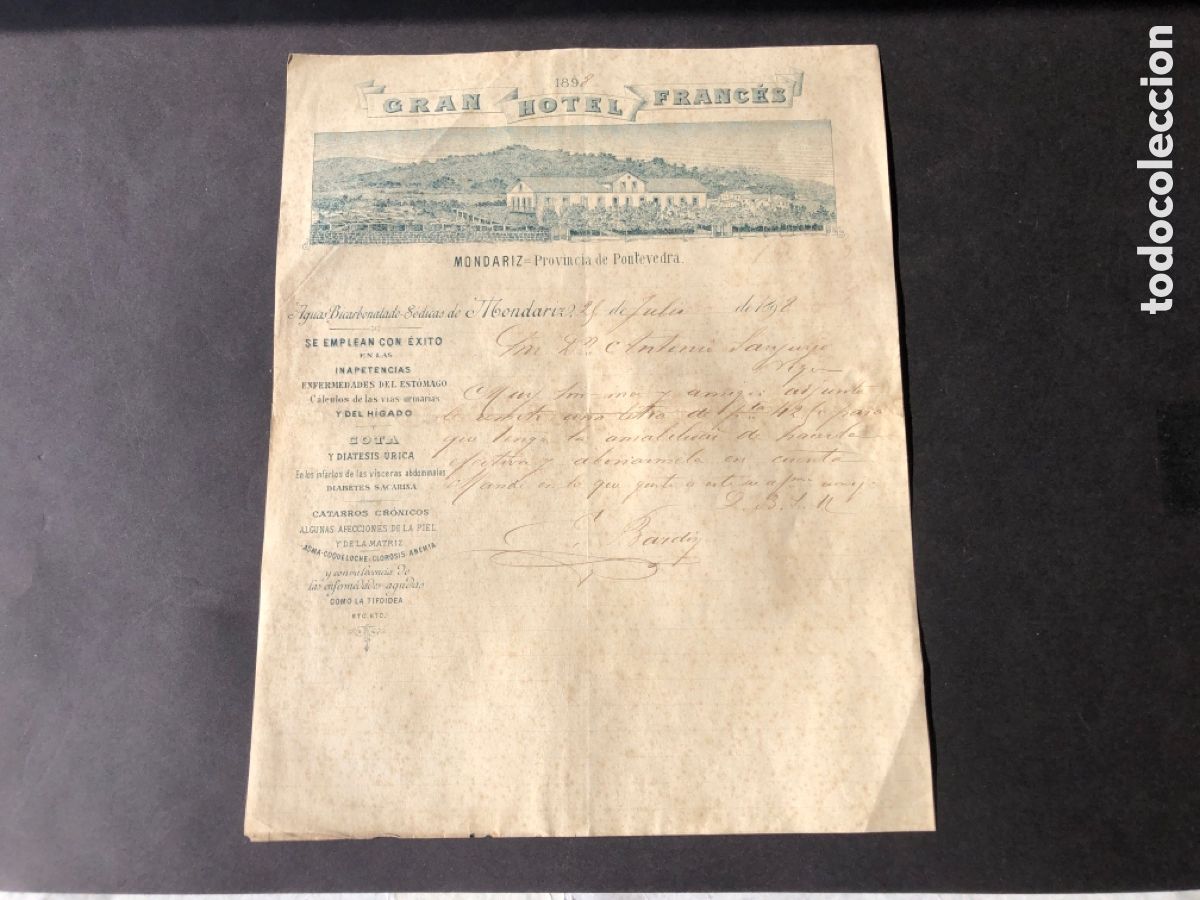 1898
GRAN HOTEL FRANCÉS
MONDARIZ = Provincia de Pontevedra.
Aguas Bicarbonatado-Sódicas de Mondariz, 25 de Julio de 1898
SE EMPLEAN CON ÉXITO
EN LAS
INAPETENCIAS
ENFERMEDADES DEL ESTÓMAGO
Cálculos de las vias urinarias
Y DEL HÍGADO
GOTA
Y DIATESIS ÚRICA
En los infartos de las vísceras abdominales
DIABETES SACARINA
CATARROS CRÓNICOS
ALGUNAS AFECCIONES DE LA PIEL
Y DE LA MATRIZ
ASMA-COQUELUCHE-CLOROSIS ANEMIA
y convalecencia de
las enfermedades agudas
COMO LA TIFOIDEA
ETC. ETC.
Sr. Dn. Antonio Sanjurjo
Vigo
Muy Sor mio y amigo: adjunto
le remito una letra de Ptas 42 para
que tenga la amabilidad de hacerla
efectiva y abonarmela en cuenta
Mande en lo que guste a este su afmo amigo
Q. B. S. M
Bardin
todocoleccion